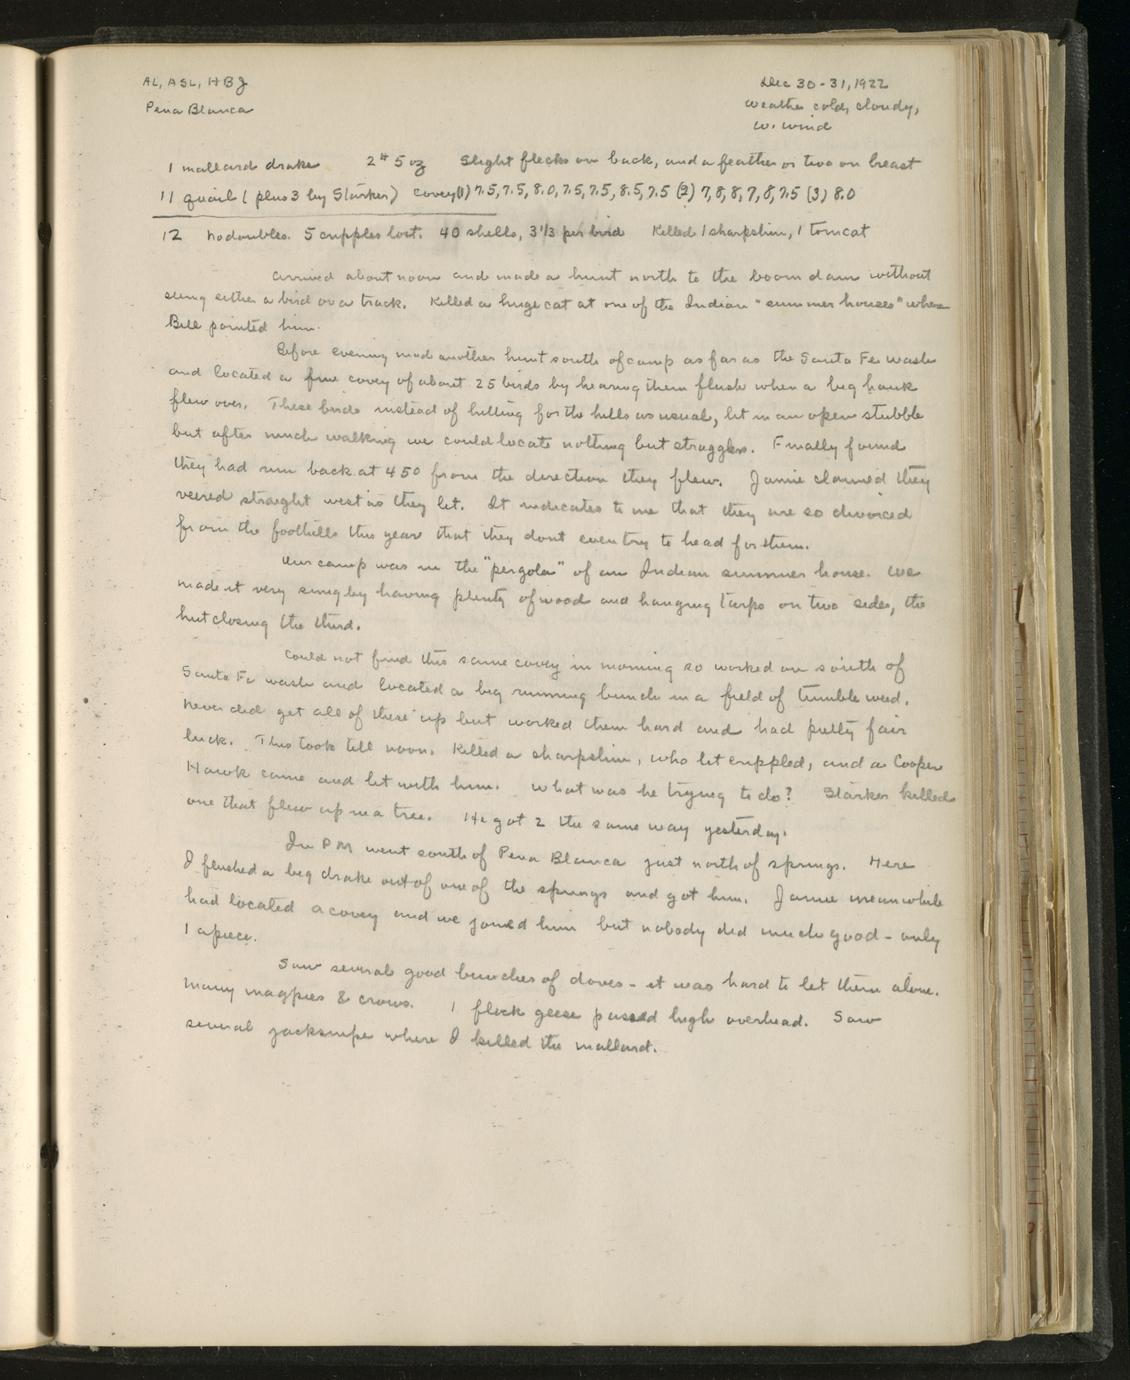 AL, ASL, HBJ
Dec 30-31, 1922
Pena Blanca
Weather cold, cloudy,
w. wind
1 mallard drake 2# 5 oz Slight flecks on back, and a feather or two on breast
11 quail (plus 3 by Starker) covey (1) 7.5, 7.5, 8.0, 7.5, 7.5, 8.5, 7.5 (2) 7, 8, 8, 7, 8, 7.5 (3) 8.0
12 No doubles. 5 cripples lost. 40 shells, 3 1/3 per bird Killed 1 sharpshin, 1 tomcat
Arrived about noon and made a hunt north to the boom dam without
seeing either a bird or a track. Killed a huge cat at one of the Indian "summer houses" where
Bill pointed him.
Before evening made another hunt south of camp as far as the Santa Fe wash
and located a fine covey of about 25 birds by hearing them flush when a big hawk
flew over. These birds instead of hitting for the hills as usual, lit in an open stubble
but after much walking we could locate nothing but stragglers. Finally found
they had run back at 45° from the direction they flew. Jamie claimed they
veered straight west as they lit. It indicates to me that they are so divorced
from the foothills this year that they dont even try to head for them.
Our camp was in the "pergola" of an Indian summer house. We
made it very snug by having plenty of wood and hanging tarps on two sides, the
hut closing the third.
Could not find this same covey in morning so worked on south of
Santa Fe wash and located a big running bunch in a field of tumble weed.
Never did get all of these up but worked them hard and had pretty fair
luck. This took till noon. Killed a sharpshin, who lit crippled, and a Cooper
Hawk came and lit with him. What was he trying to do? Starker killed
one that flew up in a tree. He got 2 the same way yesterday.
In PM went south of Pena Blanca just north of springs. Here
I flushed a big drake out of one of the springs and got him. Jamie meanwhile
had located a covey and we joined him but nobody did much good - only
1 apiece.
Saw several good bunches of doves - it was hard to let them alone.
Many magpies & crows. 1 flock geese passed high overhead. Saw
several jacksnipe where I killed the mallard.